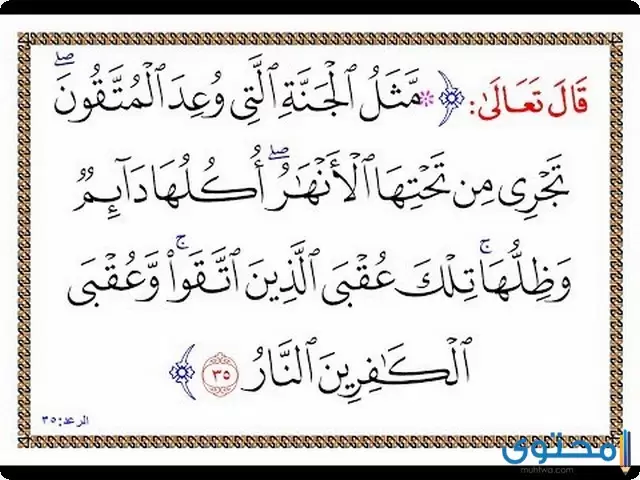 قَالَ تَعَالَىٰ: ﴿ ۞ مَّثَلُ ٱلْجَنَّةِ ٱلَّتِى وُعِدَ ٱلْمُتَّقُونَ ۖ
تَجْرِى مِن تَحْتِهَا ٱلْأَنْهَٰرُ ۖ أُكُلُهَا دَآئِمٌ
وَظِلُّهَا ۚ تِلْكَ عُقْبَى ٱلَّذِينَ ٱتَّقَوا۟ ۚ وَّعُقْبَى
ٱلْكَٰفِرِينَ ٱلنَّارُ ٣٥ ﴾
الرعد: ٣٥
محتوى
muhtwa.com